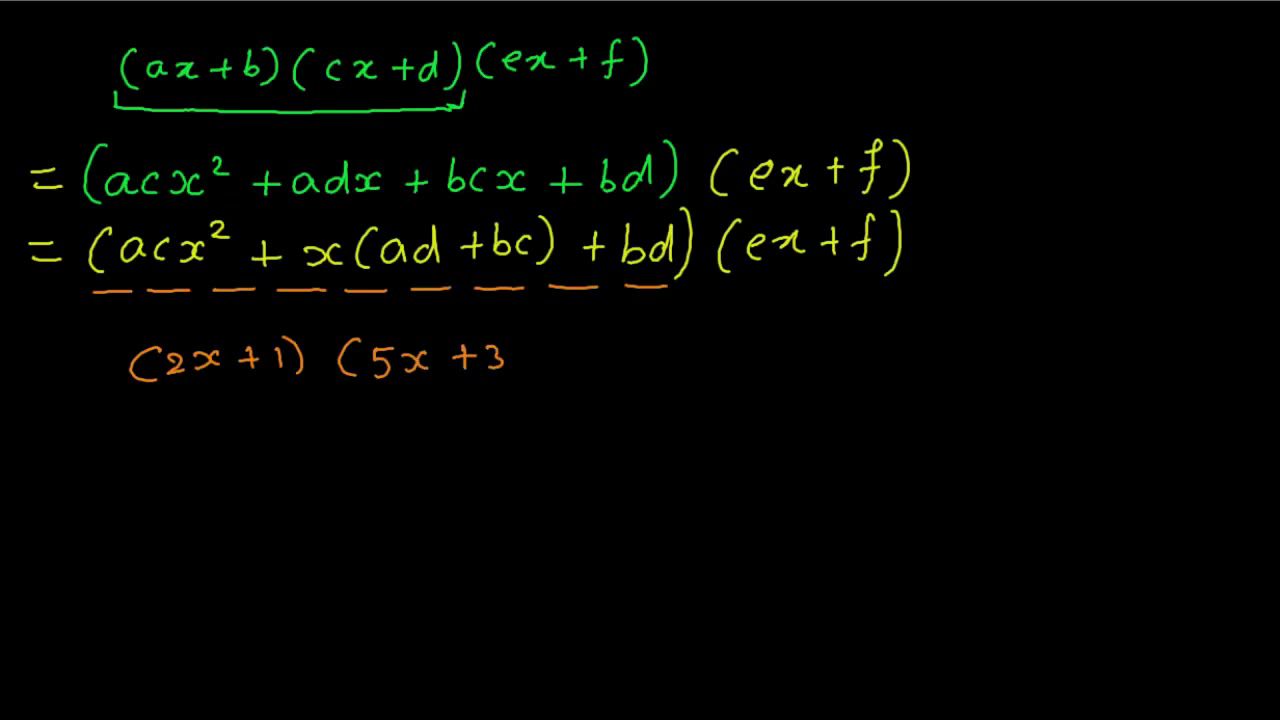 (ax+b)(cx+d)(ex+f)
=(acx²+adx+bcx+bd)(ex+f)
=(acx²+x(ad+bc)+bd)(ex+f)
(2x+1)(5x+3